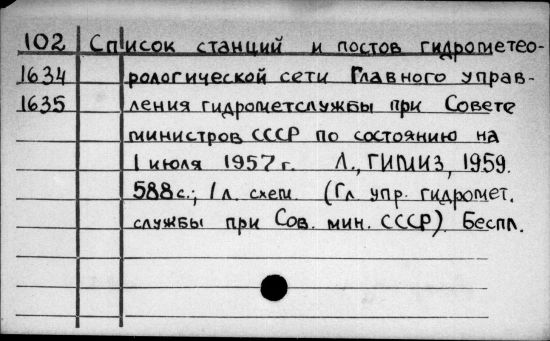 102 Список станций и постов гидрометео-
1634 рологической сети Главного управ-
1635 ления гидрометслужбы при Совете
министров СССР по состоянию на
1 июля 1957 г. Л., ГИМИЗ, 1959.
588 с.; 1 л. схем. (Гл. упр. гидромет.
службы при Сов. мин. СССР). Беспл.